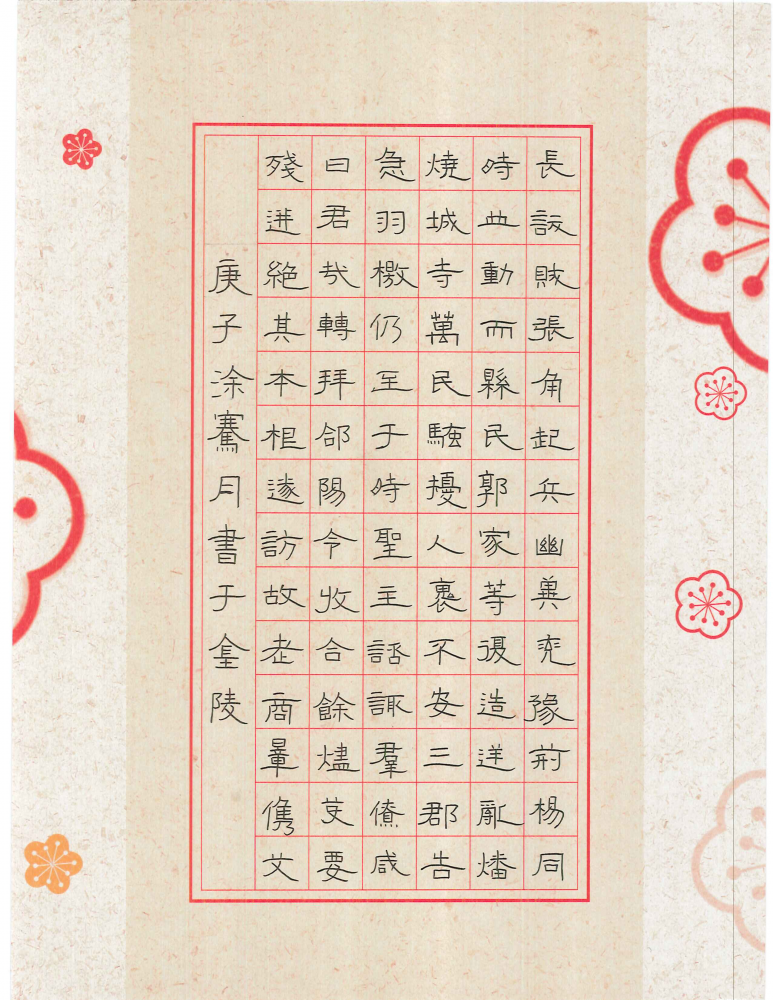 長訞賊張角起兵幽冀兗豫荊楊同
時並動而縣民郭家等復造逆亂燔
燒城寺萬民騷擾人褢不安三郡告
急羽檄仍至于時聖主諮諏羣僚咸
曰君哉轉拜郃陽令收合餘燼芟要
殘迸絕其本根遂訪故老商量儁艾
庚子涂騫月書于金陵